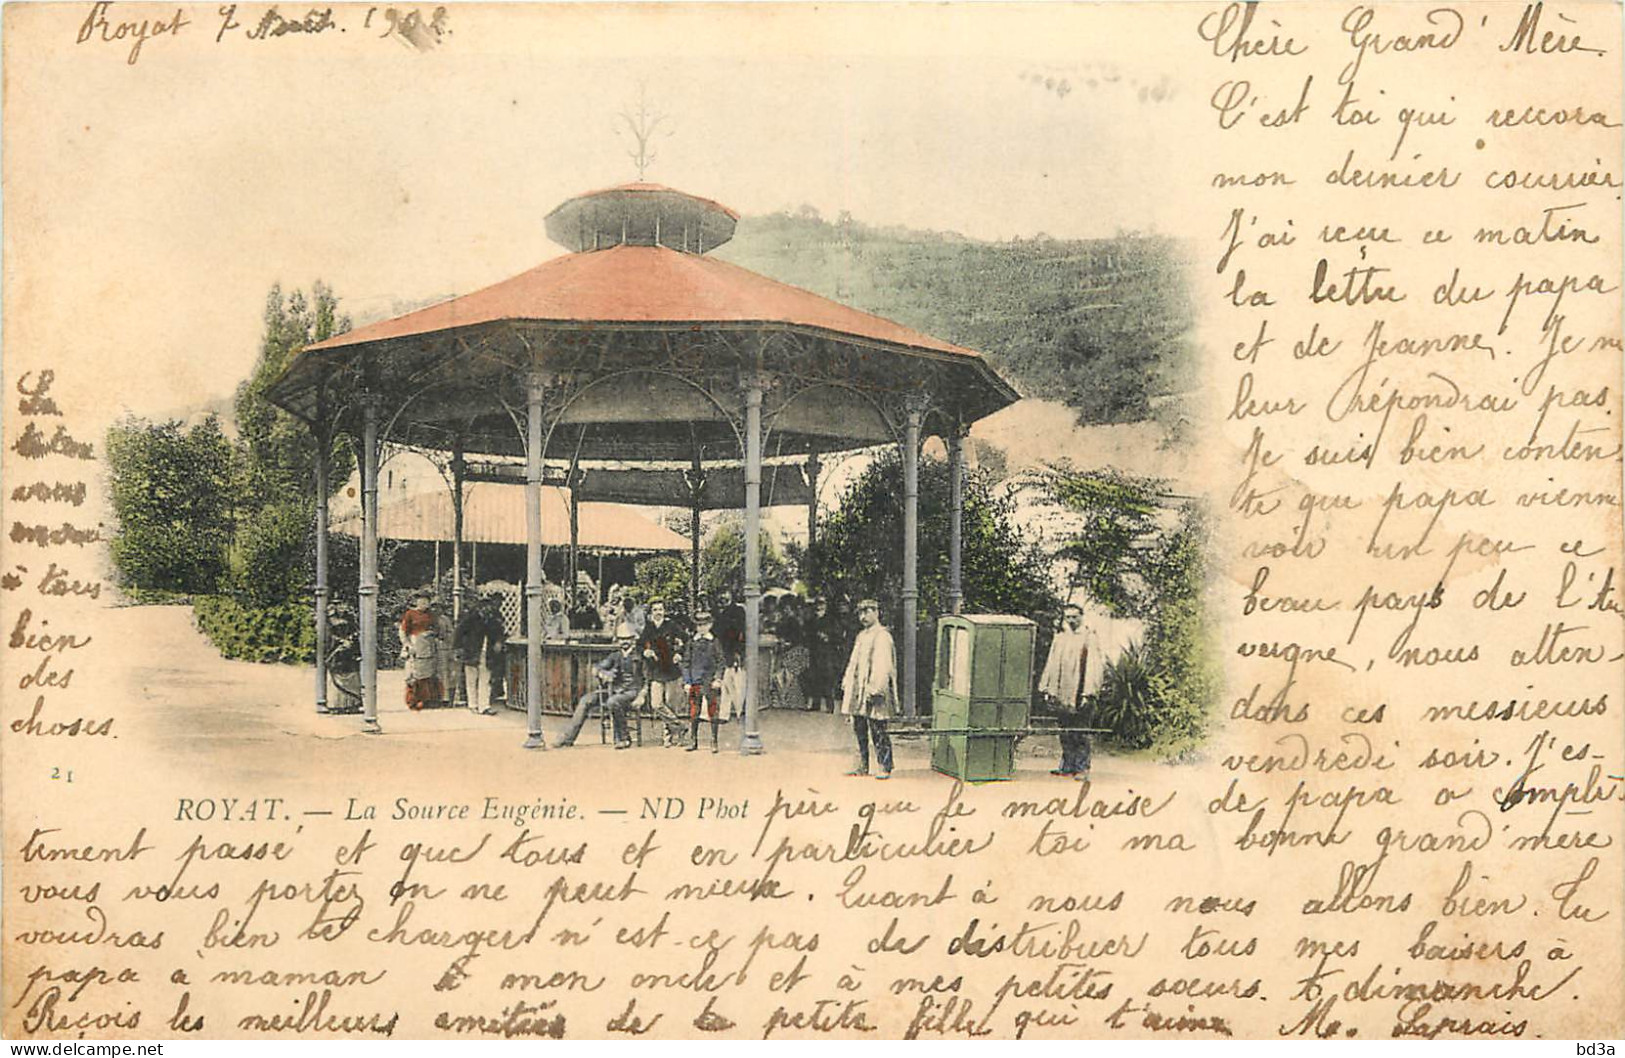 Royat 7 Août. 1902.
Chère Grand' Mère.
C'est toi qui reccora
mon dernier courrier
J'ai reçu ce matin
la lettre du papa
et de Jeanne. Je ne
leur répondrai pas.
Je suis bien conten-
te que papa vienne
voir un peu ce
beau pays de l'Au
vergne, nous atten-
dons ces messieurs
vendredi soir. J'es-
père que le malaise de papa a complè-
tement passé et que tous et en particulier toi ma bonne grand'mère
vous vous portez on ne peut mieux. Quant à nous nous allons bien. Tu
voudras bien te charger n'est-ce pas de distribuer tous mes baisers à
papa à maman à mon oncle et à mes petites sœurs. à dimanche.
Reçois les meilleurs amitiés de la petite fille qui t'aime M.
La
vous
à tous
bien
des
choses.
21
ROYAT. — La Source Eugénie. — ND Phot
bd3a